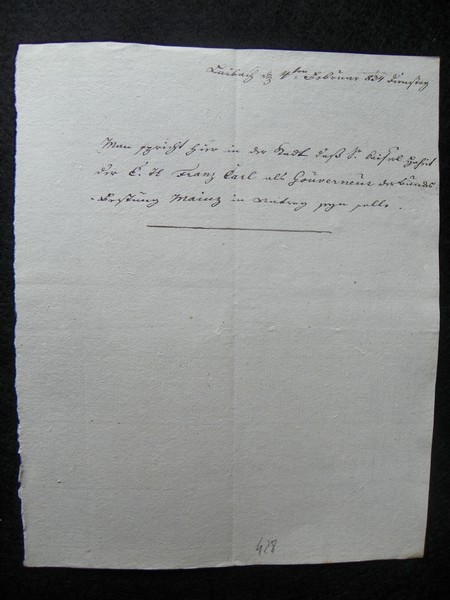 Laibach den 4ten Februar 834 Dienstag
Man spricht hier in der Stadt daß S. Kaisel Hoheit
der E. H. Franz Carl als Gouverneur der Bundes
-Festung Mainz in Antrag seyn solle.
428